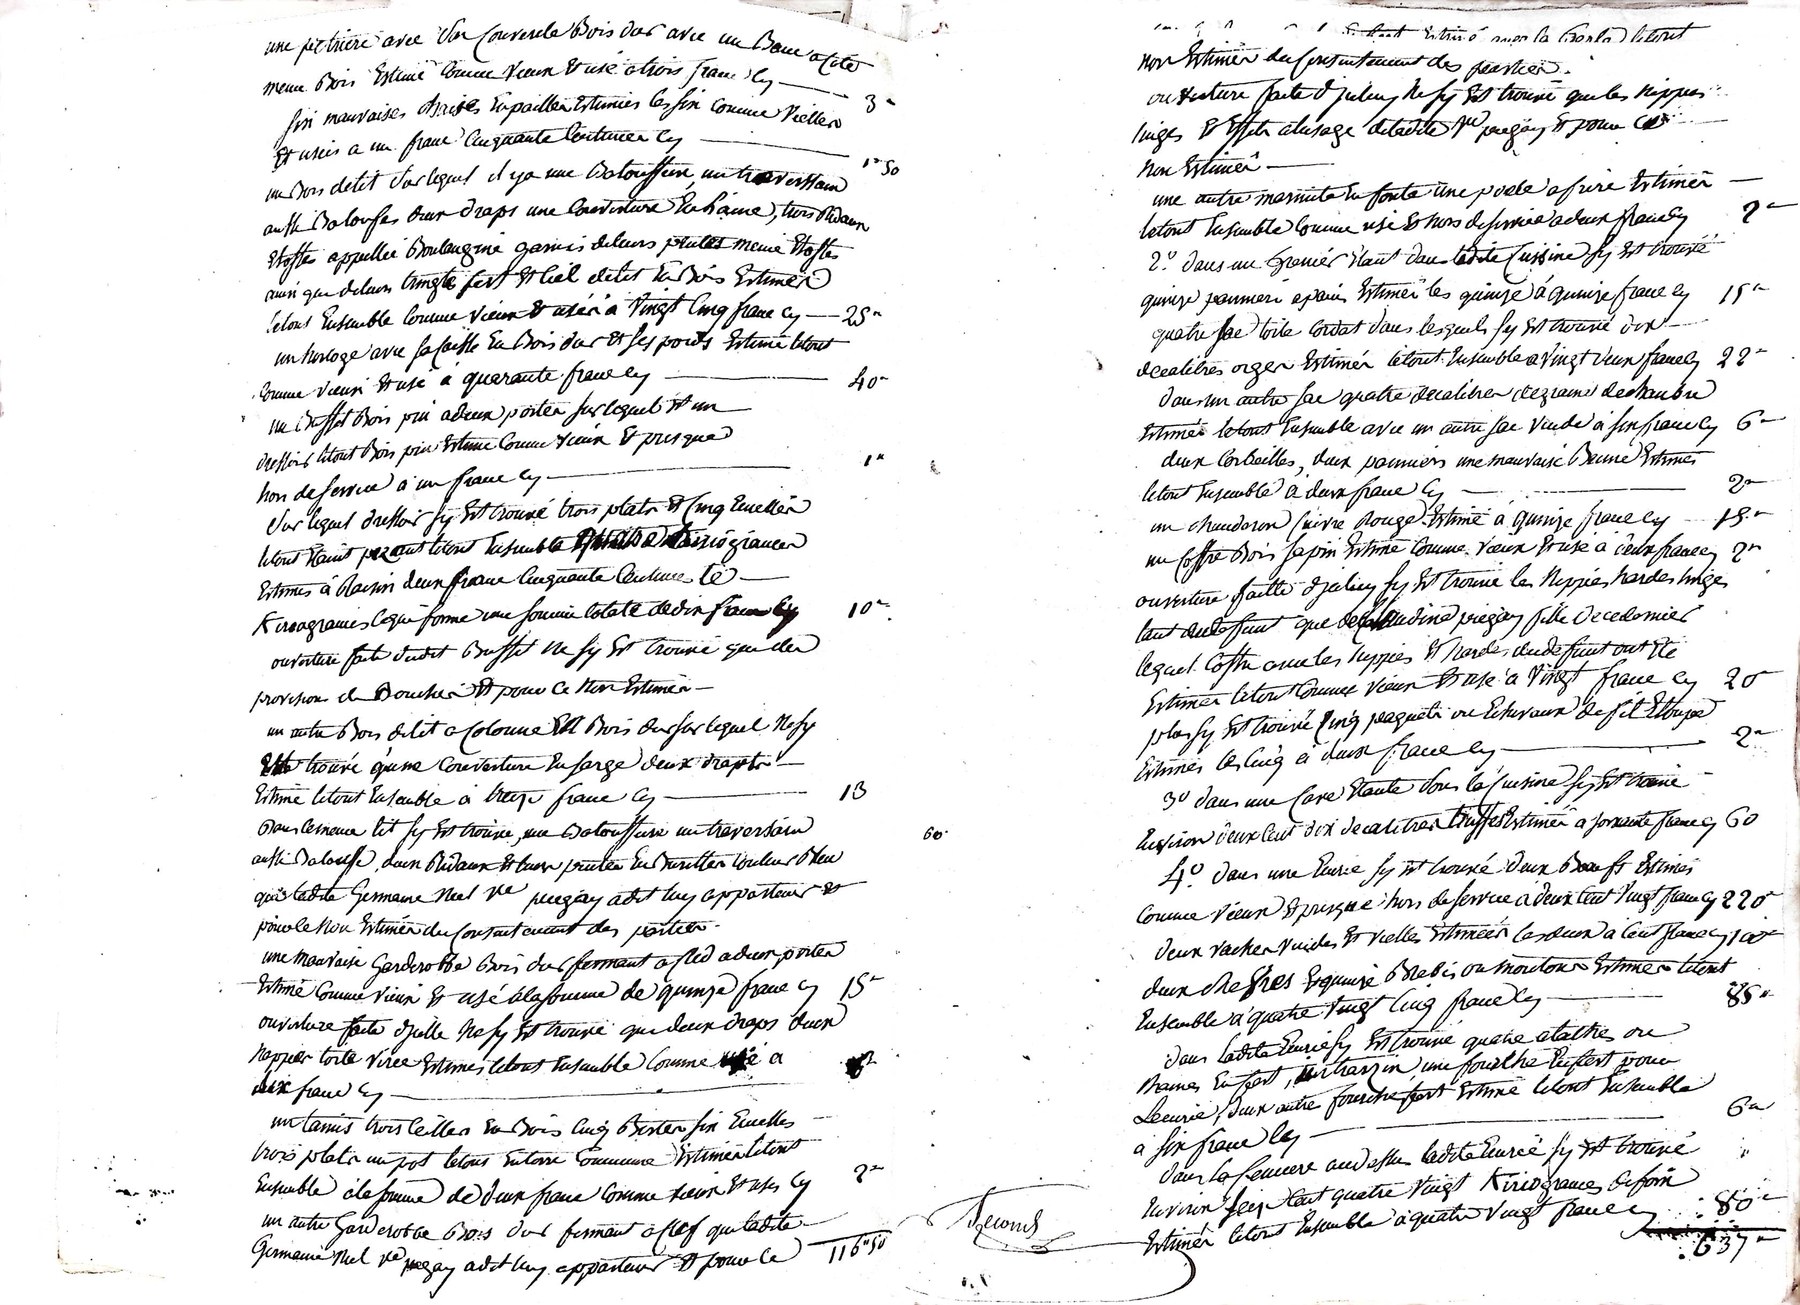 une petriere avec son Couvercle Bois dur avec un Banc a Coté
meme Bois Estimé Comme vieux et usé a trois franc Cy 3"
six mauvaises chaises Enpaillés Estimées les six comme vielles
et usées a un franc Cinquante Centimes Cy 1"50
un Bois delit sur lequel il ya une Baloussiere, un traversain
aussi Balouses deux draps une Couverture En laine, trois Ridaux
Etoffes appellée Boulangine garnis deleurs pentes meme Etoffes
ainsi que deleurs tringle fert et Ciel delit En Bois Estimés
letout Ensemble Comme vieux et usés à vingt Cinq franc Cy 25"
un horloge avec sa Caisse En Bois dur et ses poids Estimé letout
Comme vieux et usé à quarante franc Cy 40"
un Buffet Bois pin a deux portes sur lequel est un
dressoir letout Bois pin Estimé Comme vieux et presque
hors de service à un franc Cy 1"
sur lequel dressoir sy Est trouvé trois plats et Cinq Ecuelles
letout Etaint pezant letout Ensemble quatre Kiriogrames
Estimés à Raison deux franc Cinquante Centimes le
Kiriogrames Cequi forme une somme totale de dix franc Cy 10"
ouverture faite dudit Buffet ne sy Est trouvé que des
provisions de Bouches et pour Ce Non Estimés
un autre Bois delit a Colonne Bois dur sur lequel Ne sy
Est trouvé qu'une Couverture En sarge deux draps
Estimé letout Ensemble à treize franc Cy 13
Dans lememe lit sy Est trouvé, une Baloussiere un traversain
aussi Balousse, deux Ridaux et leurs pentes En Burattes Couleur Bleu
que ladite Germaine Nuel ve pugay adit luy appartenir et
pour Ce Non Estimés du Consentement des parties.
une mauvaise Garderobbe Bois dur fermant a Clef a deux portes
Estimé Comme vieux Et usé à la somme de quinze franc Cy 15"
ouverture faite dycelle Ne sy Est trouvé que deux draps deux
Nappes toile virée Estimés letout Ensemble Comme usé a
deux franc Cy 2"
un tamis trois Celles En Bois Cinq Bistes six Ecuelles
trois plats un pot letout Enterre Commune Estimés letout
Ensemble à la somme de deux franc Comme vieux Et usés Cy 2"
un autre Garderobbe Bois dur fermant a Clef que ladite
Germaine Nuel ve pugay adit luy appartenir Et pour Ce 116"50
60"
Second
non Estimés du Consentement des parties.
ouverture faite dyceluy Ne sy Est trouvé que les Nippes
linges Et Effets à lusage deladite ve pugay Et pour Ce
Non Estimés
une autre marmite En fonte une poele a frire Estimés
letout Ensemble Comme usé et hors de service a deux franc Cy 2"
2° dans un Grenier Etant dans ladite Cuisine sy Est trouvé
quinze panniers a pain Estimés les quinze à quinze franc Cy 15"
quatre sac toile Cordat dans lesquels sy Est trouvé dix
decalitres orges Estimés letout Ensemble a vingt deux franc Cy 22"
dans un autre sac quatre decalitres de graines de chanvre
Estimés letout Ensemble avec un autre sac vuide à six franc Cy 6"
deux Corbeilles, deux panniers une mauvaise Benne Estimés
letout Ensemble à deux franc Cy 2"
un chauderon Cuivre Rouge Estimé à quinze franc Cy 15"
un Coffre Bois sapin Estimé Comme vieux Et usé à deux franc Cy 2"
ouverture faitte dyceluy sy Est trouvé les Nippes hardes linges
tant dudefunt que de Claudine pugay fille de ce dernier
lequel Coffre avec les Nippes Et hardes dudefunt ont Eté
Estimés letout Comme vieux Et usé à vingt franc Cy 20"
plus sy Est trouvé Cinq paquets ou Echevaux de fil Etoupe
Estimés les Cinq à deux franc Cy 2"
3° dans une Cave Etante sous la Cuisine sy Est trouvé
Environ deux Cent dix decalitres truffes Estimés a soixante franc Cy 60
4° dans une Ecurie sy Est trouvé deux Beufs Estimés
Comme vieux Et presque hors de service à deux Cent vingt franc Cy 220"
deux vaches vuides Et vielles Estimées les deux à Cent franc Cy 100"
deux chevres Et quinze Brebis ou moutons Estimés letout
Ensemble à quatre vingt Cinq franc Cy 85"
dans ladite Ecurie sy Est trouvé quatre ataches ou
chaines En fert, une fourche En fert pour
Lecurie, deux autre fourche fert Estimé letout Ensemble
à six franc Cy 6"
dans la feniere au dessus ladite Ecurie sy Est trouvé
Environ Cent quatre vingt Kiriogrames de foin
Estimés letout Ensemble à quatre vingt franc Cy 80"
637"